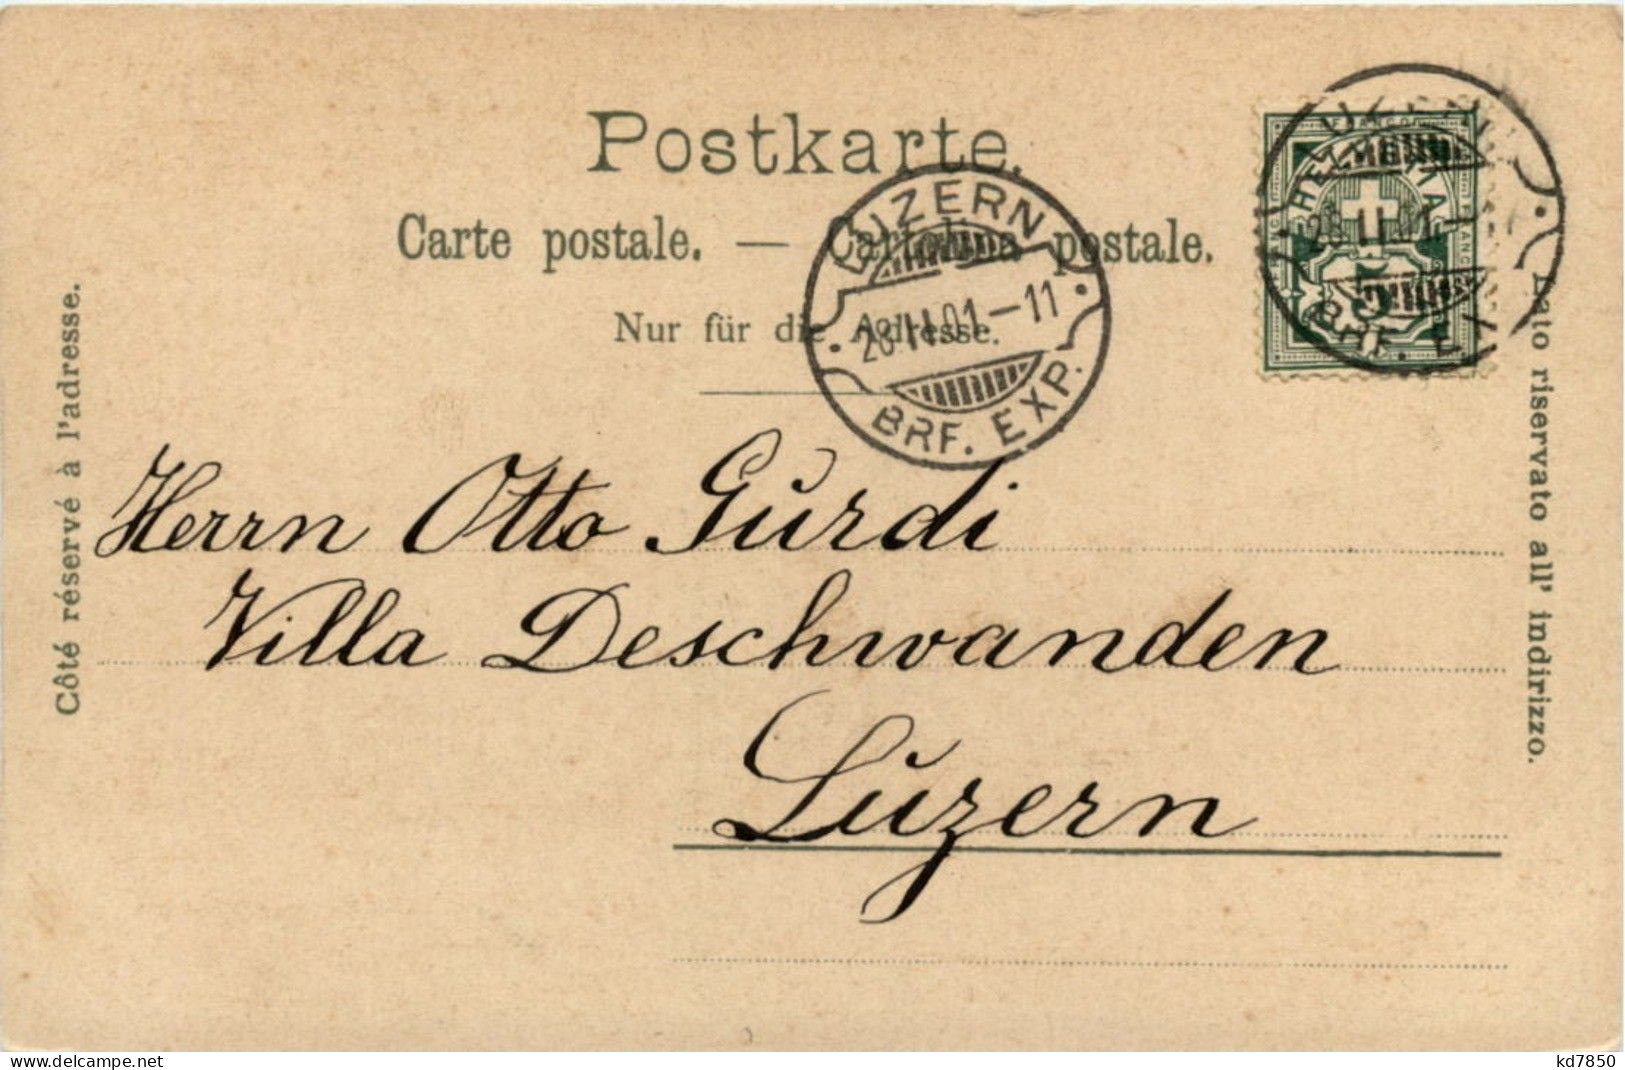 Postkarte.
Carte postale. — Cartolina postale.
Nur für die Adresse.
LUZERN
28.II.01-11
BRF. EXP.
HELVETIA
28.II.01
5
BRF. EX
Côté réservé à l'adresse.
Lato riservato all' indirizzo.
Herrn Otto Gurdi
Villa Deschwanden
Luzern
www.delcampe.net
kd7850